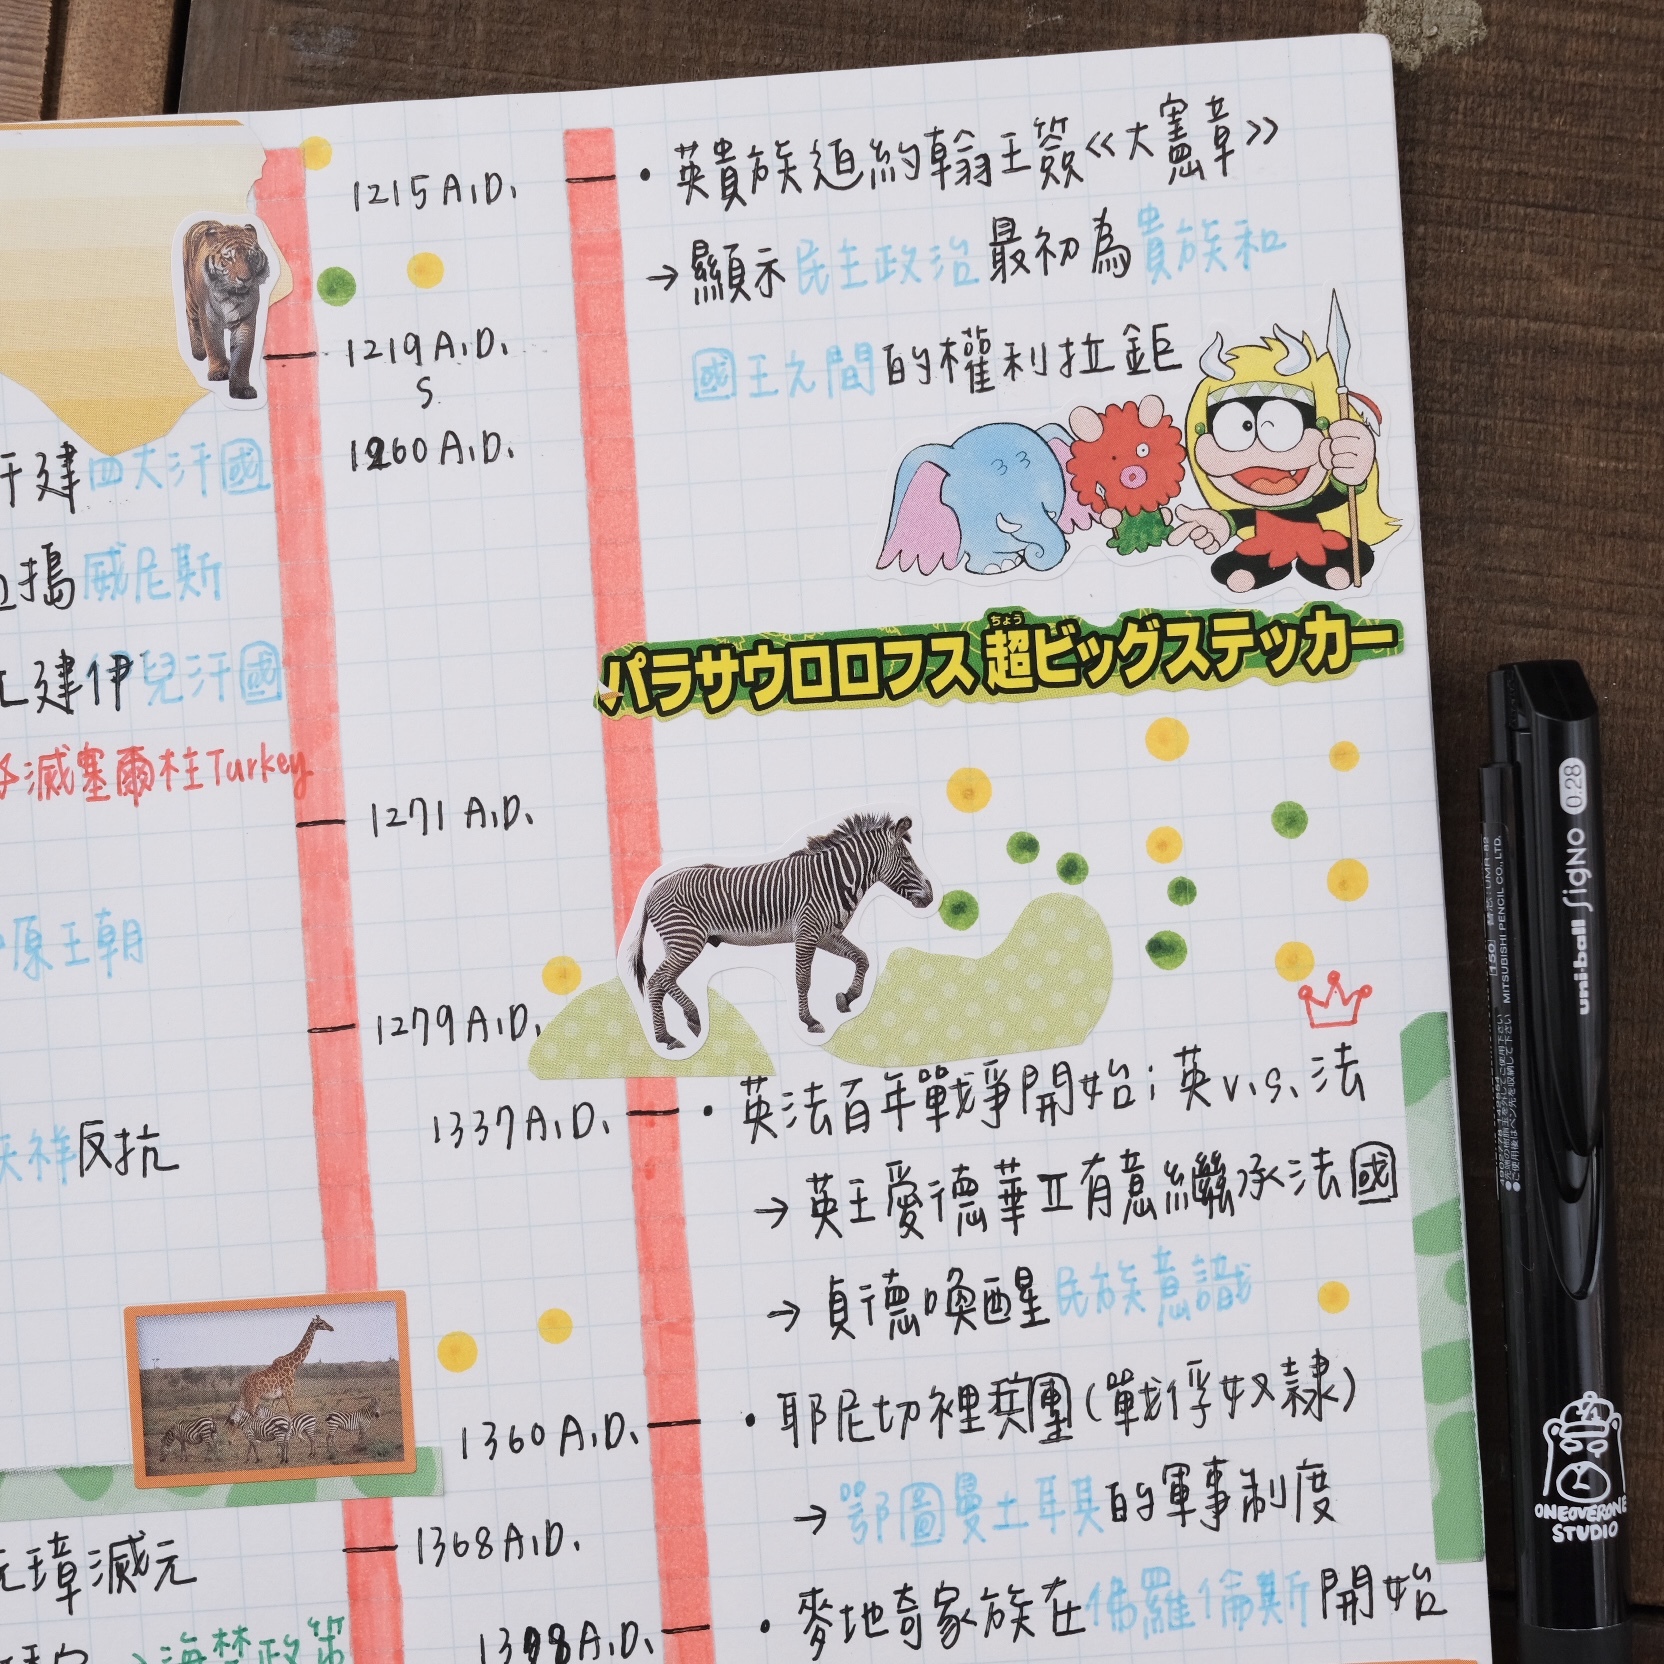 1215 A.D.
• 英貴族迫約翰王簽《大憲章》
→顯示民主政治最初為貴族和
國王之間的權利拉鉅
1219 A.D.
S
1260 A.D.
汗建四大汗國
搗威尼斯
建伊兒汗國
滅塞爾柱Turkey
ちょう
パラサウロロフス 超ビッグステッカー
1271 A.D.
原王朝
1279 A.D.
1337 A.D.
• 英法百年戰爭開始；英v.s.法
祥反抗
→英王愛德華Ⅱ有意繼承法國
→貞德喚醒民族意識
1360 A.D.
• 耶尼切裡兵團(戰俘奴隸)
→鄂圖曼土耳其的軍事制度
1368 A.D.
元璋滅元
1398 A.D.
• 麥地奇家族在佛羅倫斯開始
海禁政策
uni-ball SigNO 0.28
MITSUBISHI PENCIL CO., LTD.
ONEOVERONE
STUDIO